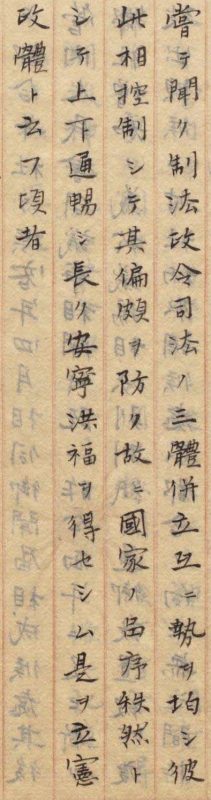 嘗テ聞ク制法政令司法ノ三體併立互ニ勢ヲ均シ彼
此相控制シテ其偏頗ヲ防ク故ニ國家ノ品序秩然ト
シテ上下通暢シ長ク安寧洪福ヲ得セシム是ヲ立憲
政體ト云フ頃者